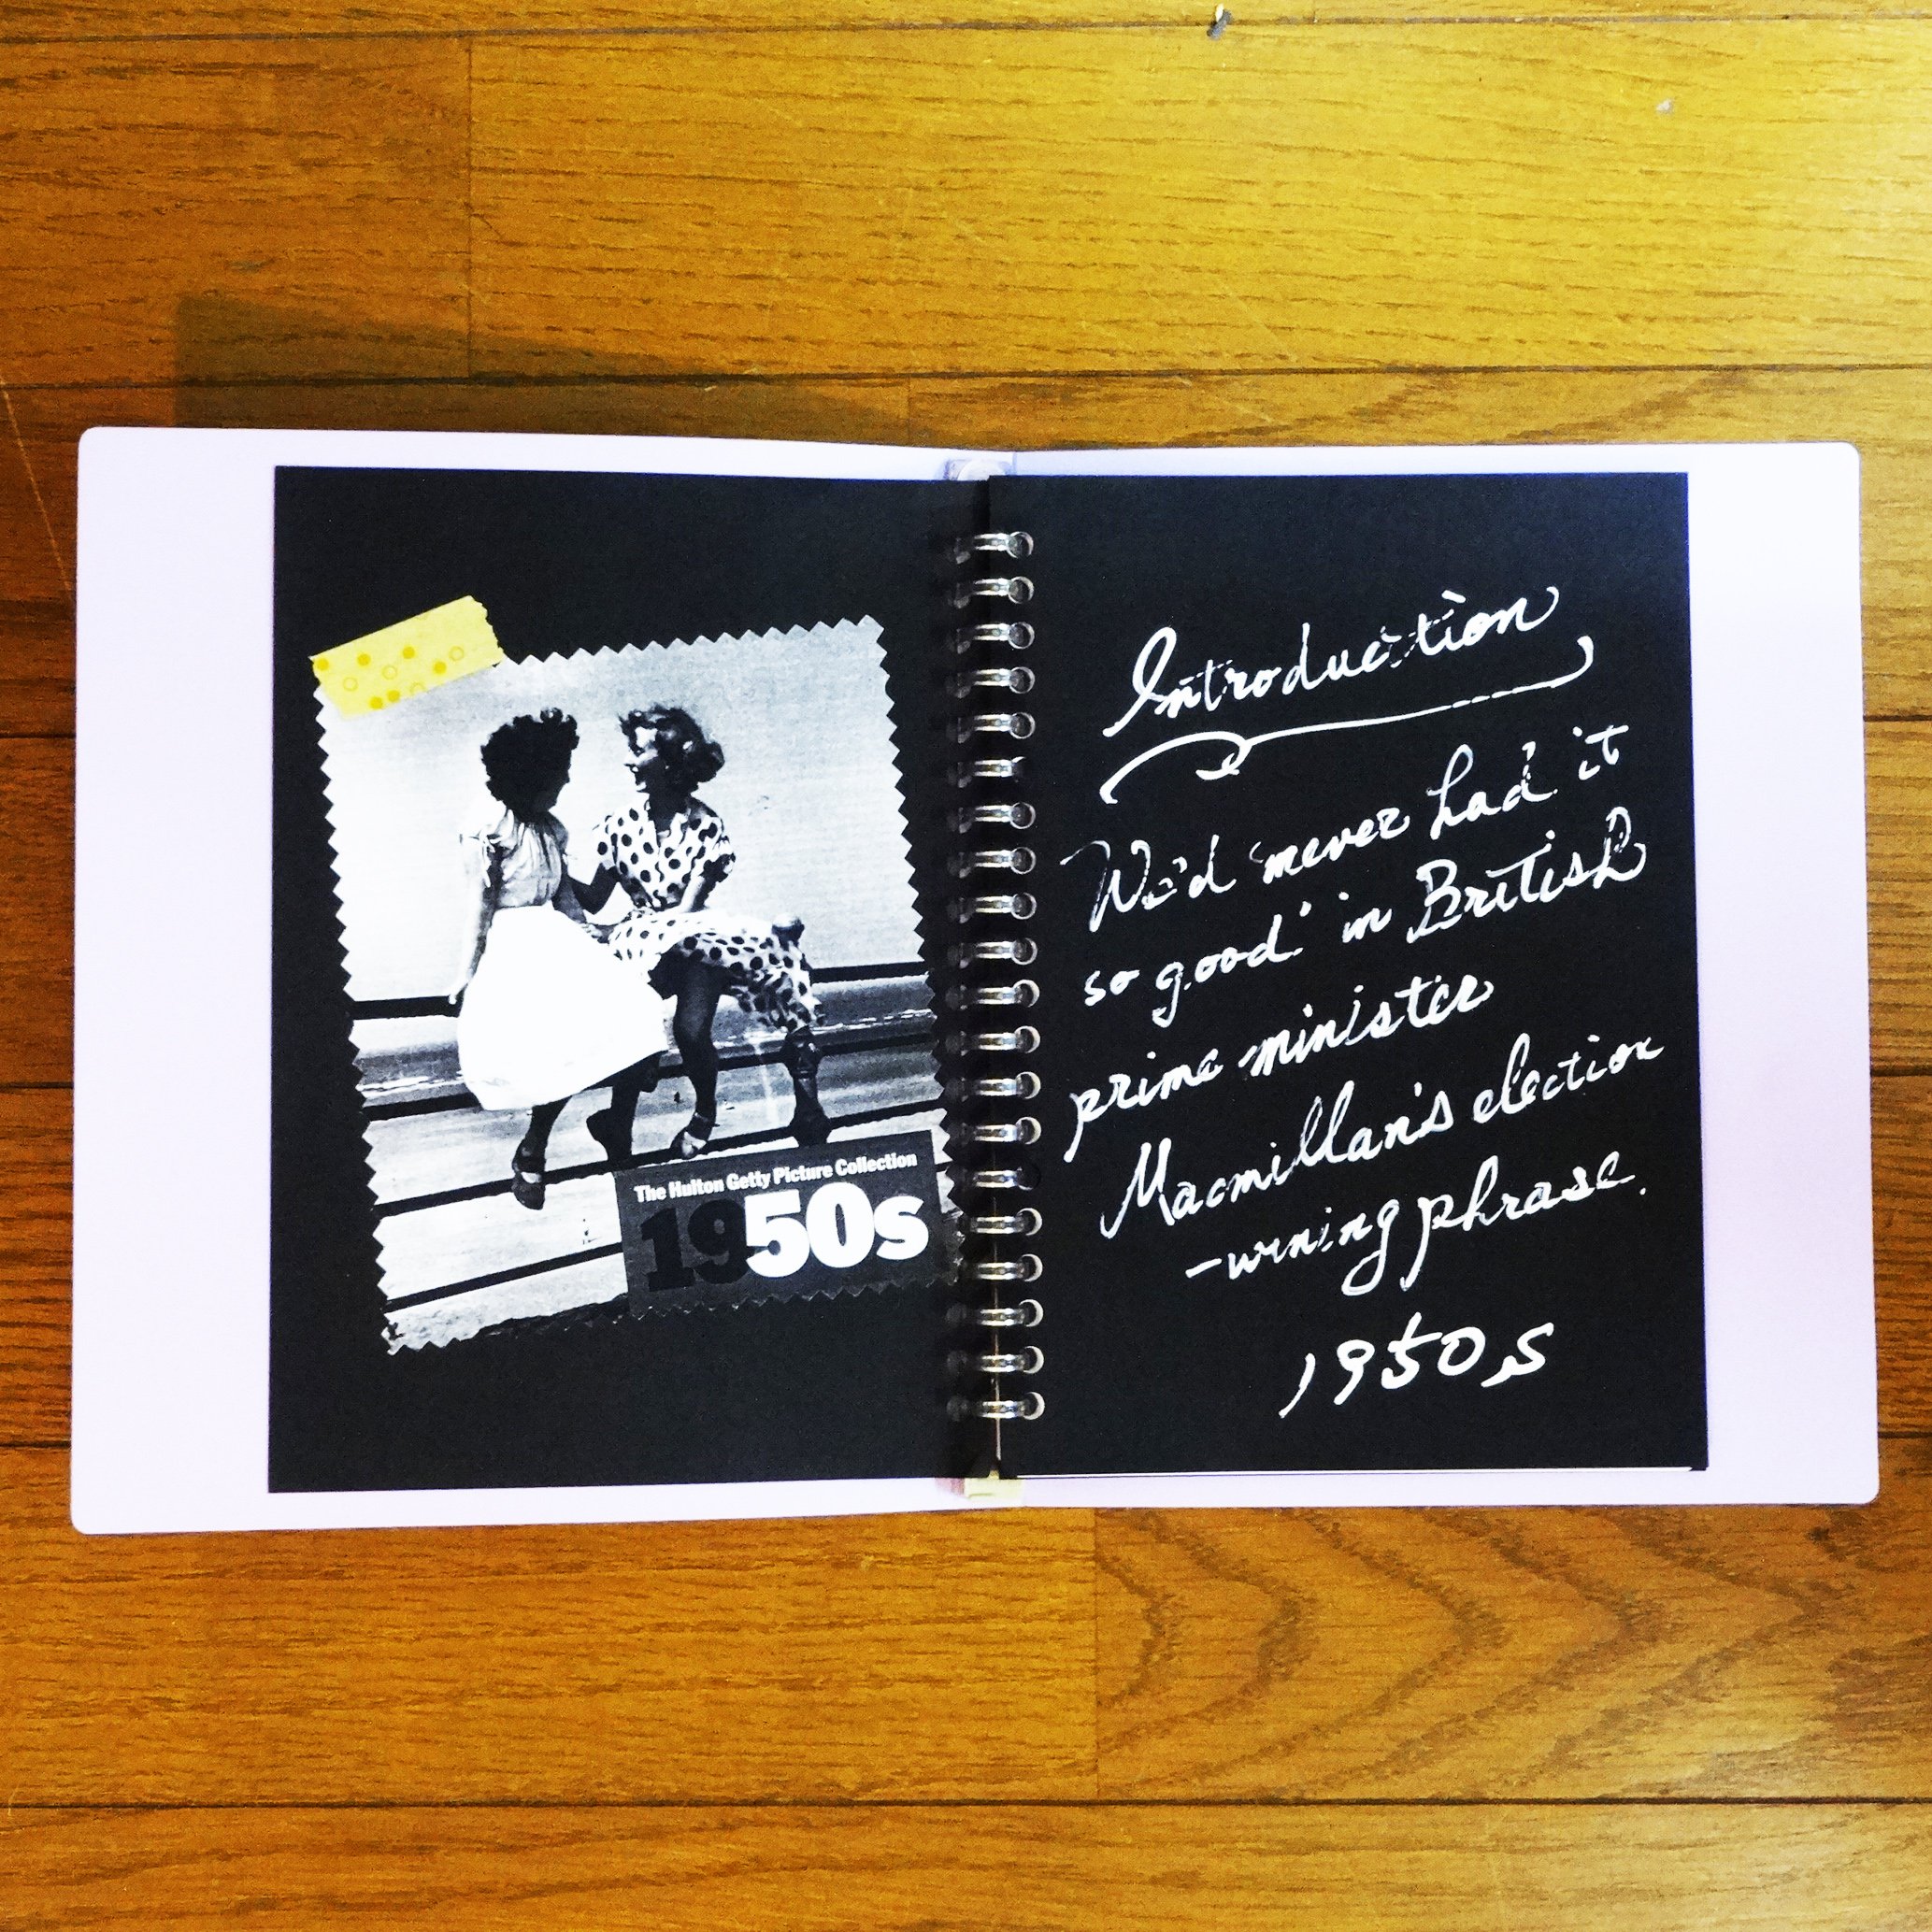 The Hulton Getty Picture Collection
1950s
Introduction
We'd 'never had it
so good' in British
prime minister
Macmillan's election
-wining phrase.
1950s